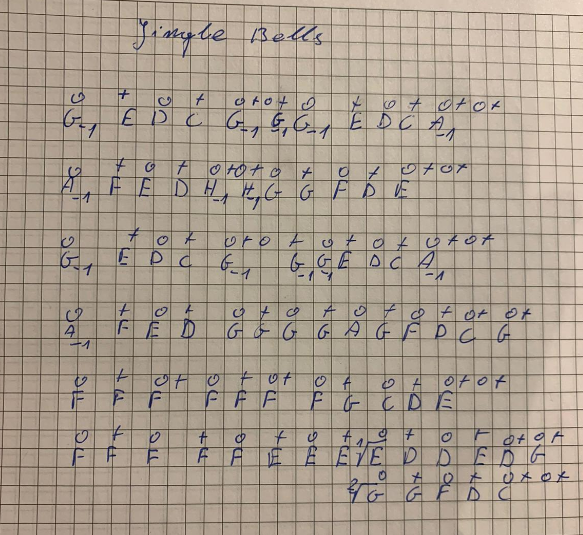 Jingle Bells
o + o + o+o+ o + o + o+o+
G-1 E D C G-1 G-1 G-1 E D C A-1
o + o + o+o+o + o + o+o+
A-1 F E D H-1 H-1 G G F D E
o + o + o+o + o + o + o+o+
G-1 E D C G-1 G-1 G-1 E D C A-1
o + o + o + o + o + o + o+ o+
A-1 F E D G G G G A G F D C G
o + o+ o + o+ o + o + o+o+
F F F F F F F G C D E
o + o + o + o + 1 o + o + o+o+
F F F F F E E E E D D E D G
2 o + o + o+o+
G G F D C